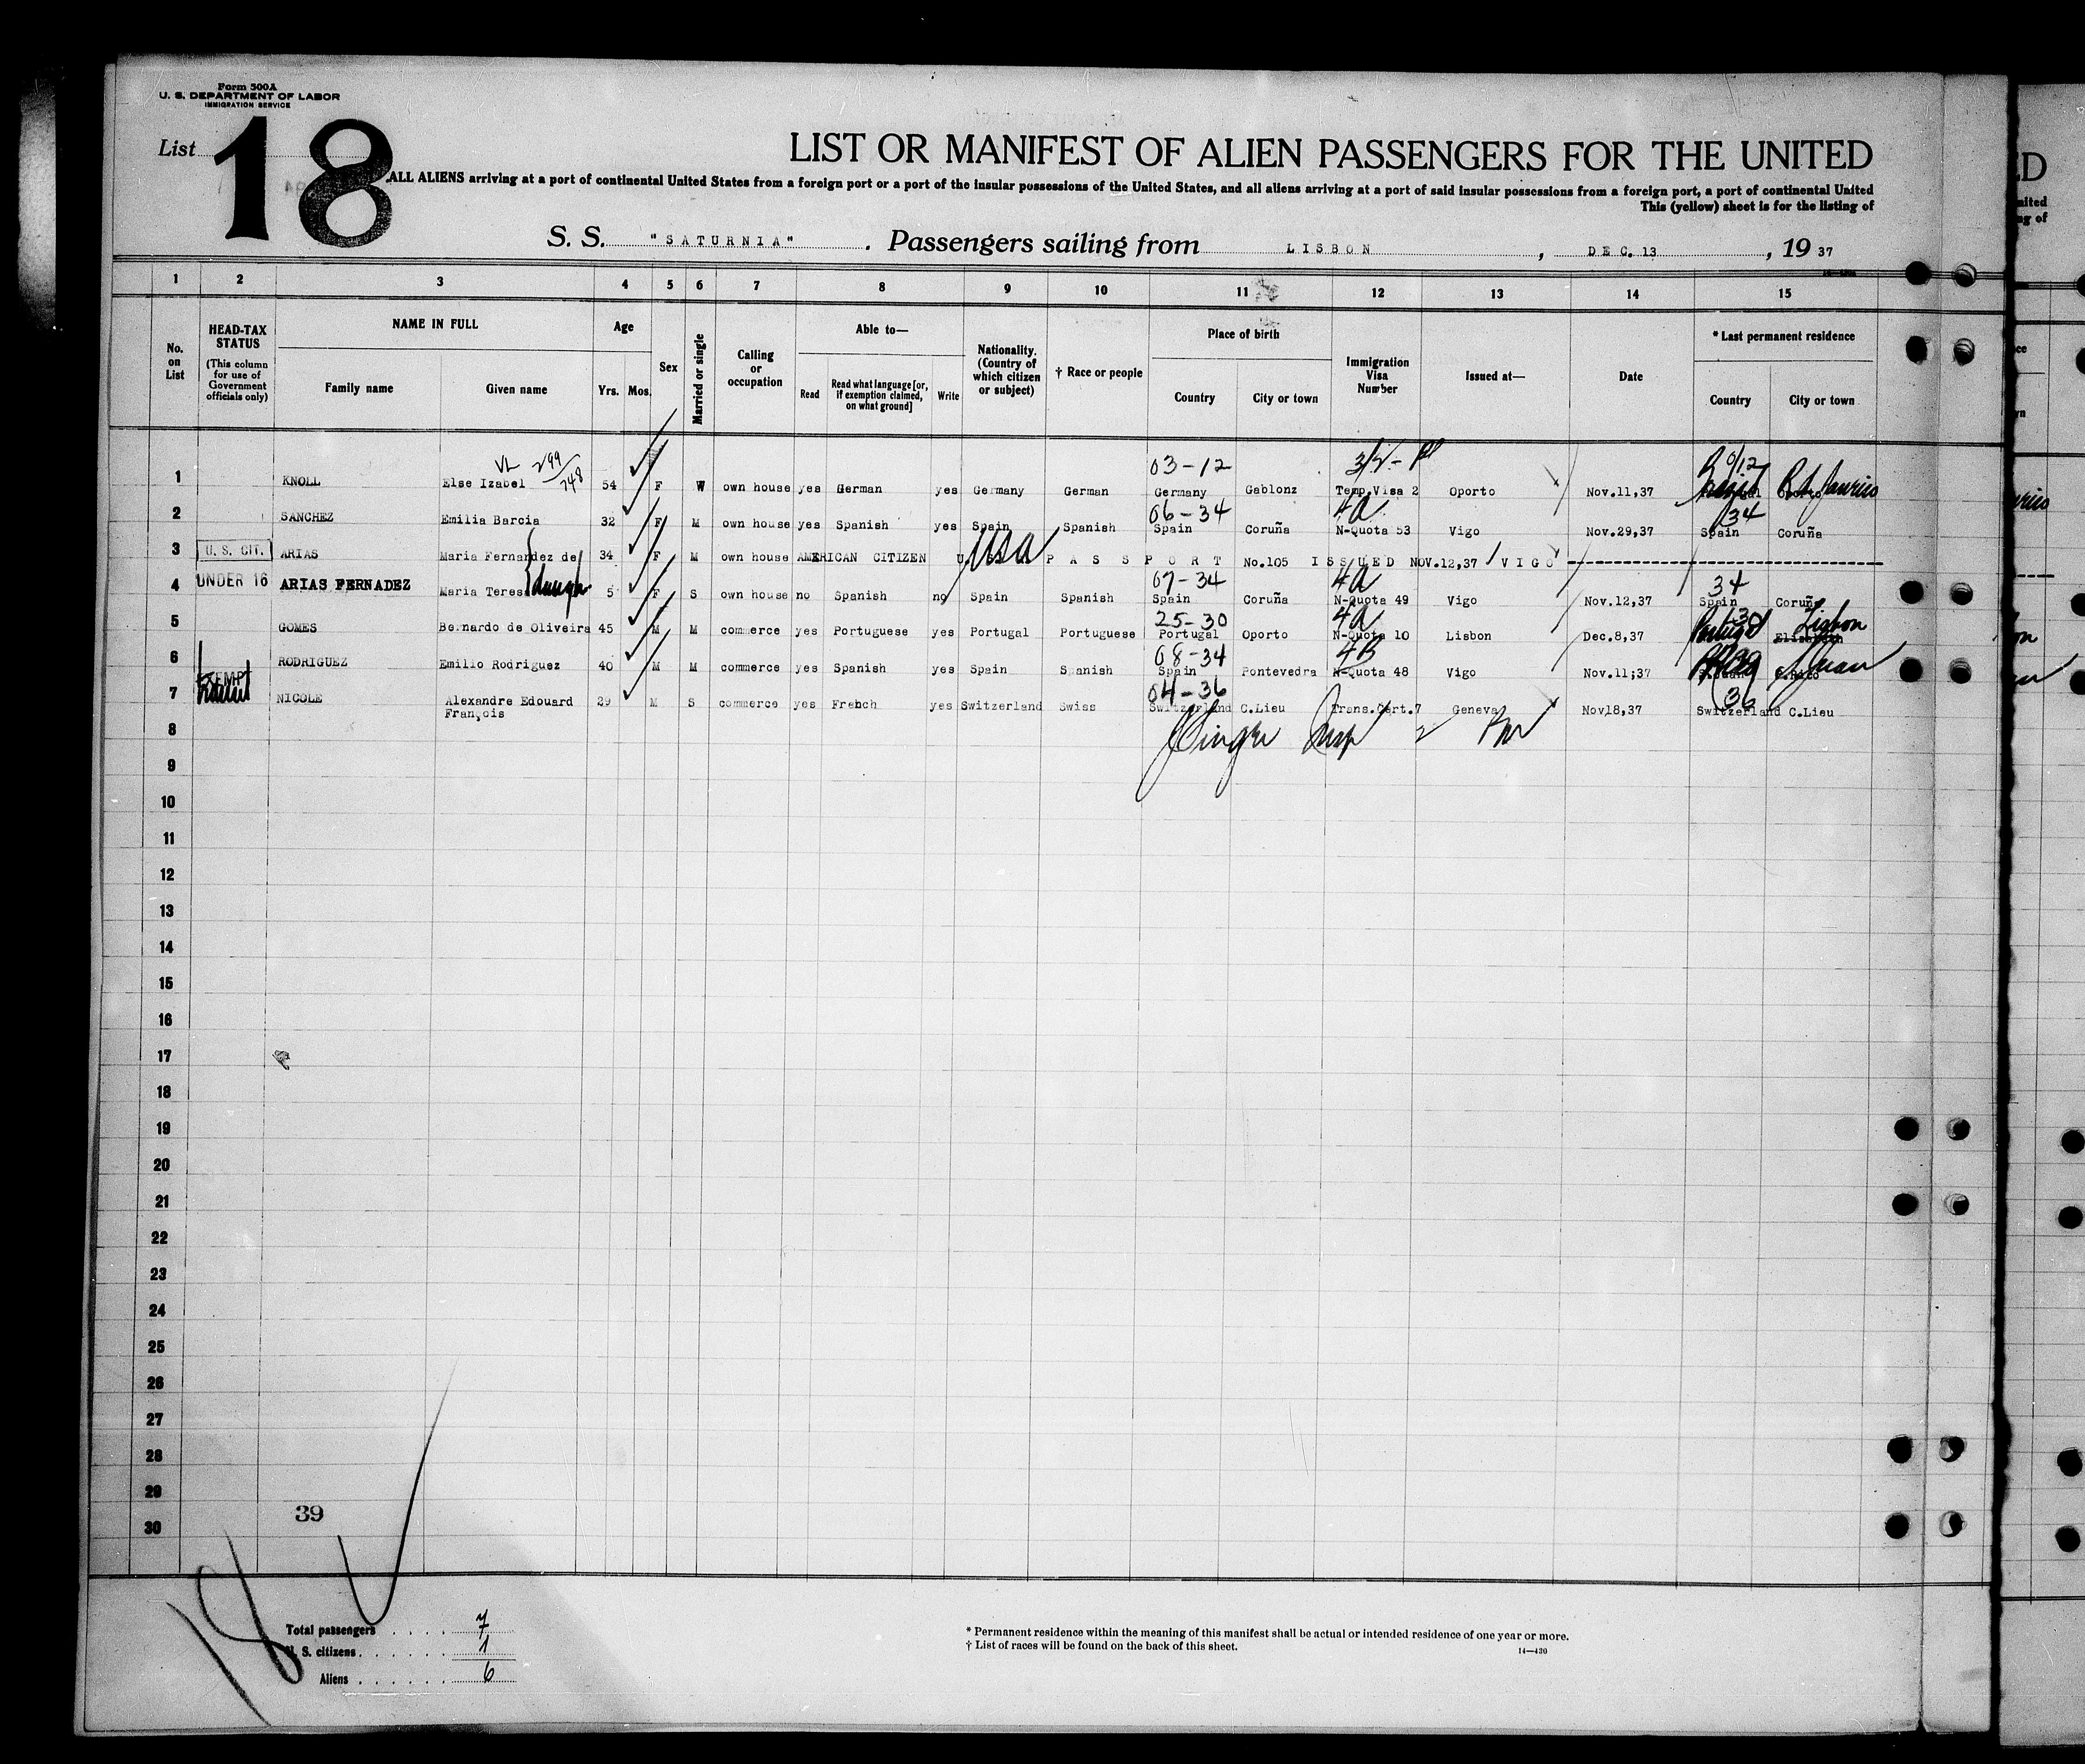 Form 500A
U. S. DEPARTMENT OF LABOR
IMMIGRATION SERVICE
List 18
LIST OR MANIFEST OF ALIEN PASSENGERS FOR THE UNITED
ALL ALIENS arriving at a port of continental United States from a foreign port or a port of the insular possessions of the United States, and all aliens arriving at a port of said insular possessions from a foreign port, a port of continental United
This (yellow) sheet is for the listing of
S. S. "SATURNIA". Passengers sailing from LISBON, DEC. 13, 19 37
1 2 3 4 5 6 7 8 9 10 11 12 13 14 15
No. on List
HEAD-TAX STATUS (This column for use of Government officials only)
NAME IN FULL
Family name Given name
Age
Yrs. Mos.
Sex
Married or single
Calling or occupation
Able to—
Read Read what language [or, if exemption claimed, on what ground] Write
Nationality. (Country of which citizen or subject)
† Race or people
Place of birth
Country City or town
Immigration Visa Number
Issued at—
Date
* Last permanent residence
Country City or town
299/748 03-12 0/12
1 KNOLL Else Izabel 54 F W own house yes German yes Germany German Germany Gablonz Temp.Visa 2 Oporto Nov.11,37
06-34 4A 34
2 SANCHEZ Emilia Barcia 32 F M own house yes Spanish yes Spain Spanish Spain Coruña N-Quota 53 Vigo Nov.29,37 Spain Coruña
3 U. S. CIT. ARIAS Maria Fernandez de 34 F M own house AMERICAN CITIZEN USA PASSPORT No.105 ISSUED NOV.12,37 VIGO
07-34 4A 34
4 UNDER 16 ARIAS FERNADEZ Maria Teresa 5 F S own house no Spanish no Spain Spanish Spain Coruña N-Quota 49 Vigo Nov.12,37 Spain Coruña
25-30 4A
5 GOMES Bernardo de Oliveira 45 M M commerce yes Portuguese yes Portugal Portuguese Portugal Oporto N-Quota 10 Lisbon Dec.8,37 Portugal Lisbon
08-34 4B
6 RODRIGUEZ Emilio Rodriguez 40 M M commerce yes Spanish yes Spain Spanish Spain Pontevedra N-Quota 48 Vigo Nov.11;37
04-36 36
7 NICOLE Alexandre Edouard François 29 M S commerce yes French yes Switzerland Swiss Switzerland C.Lieu Trans.Cert.7 Geneva Nov18,37 Switzerland C.Lieu
8
9
10
11
12
13
14
15
16
17
18
19
20
21
22
23
24
25
26
27
28
29
30
39
18
Total passengers 7
U. S. citizens 1
Aliens 6
* Permanent residence within the meaning of this manifest shall be actual or intended residence of one year or more.
† List of races will be found on the back of this sheet.
14—430